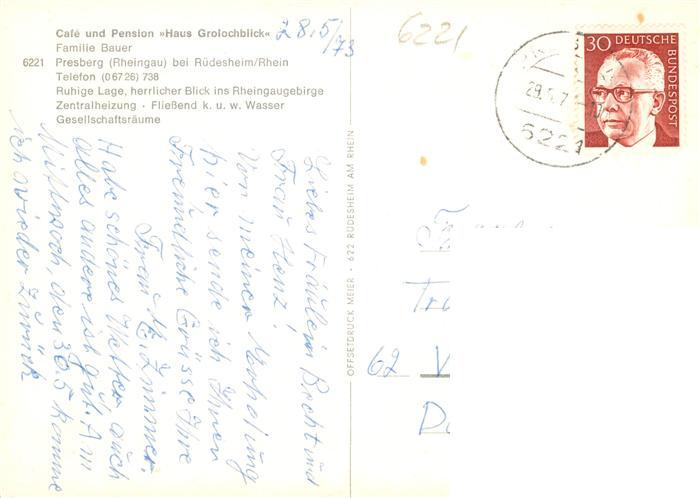 Café und Pension »Haus Grolochblick«
Familie Bauer
6221 Presberg (Rheingau) bei Rüdesheim/Rhein
Telefon (0 67 26) 738
Ruhige Lage, herrlicher Blick ins Rheingaugebirge
Zentralheizung · Fließend k. u. w. Wasser
Gesellschaftsräume
28.5/73
Liebes Fräulein Brecht und
Frau Henz!
Von meiner Erholung
hier sende ich Ihnen
Freundliche Grüsse Ihre
Frau M. Zimmer.
Habe schönes Wetter auch
alles andere ist gut. Am
Mittwoch, den 30.5 komme
ich wieder zurück
OFFSETDRUCK MEIER · 622 RÜDESHEIM AM RHEIN
6221
30 DEUTSCHE
BUNDESPOST
29.5.7
6221
62